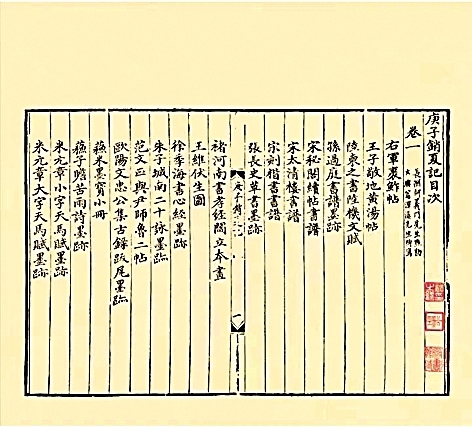 庚子銷夏記目次
卷一
右軍裹鮓帖
王子敬地黃湯帖
陸柬之書陸機文賦
孫過庭書譜墨跡
宋秘閣續帖書譜
宋太清樓書譜
宋刻楷書書譜
張長史草書墨跡
庚子銷夏記
一
褚河南書孝經閻立本畫
王維伏生圖
徐季海書心經墨跡
朱子城南二十詠墨跡
范文正與尹師魯二帖
歐陽文忠公集古錄跋尾墨跡
蘇米墨寶小冊
蘇子瞻苦雨詩墨跡
米元章小字天馬賦墨跡
米元章大字天馬賦墨跡